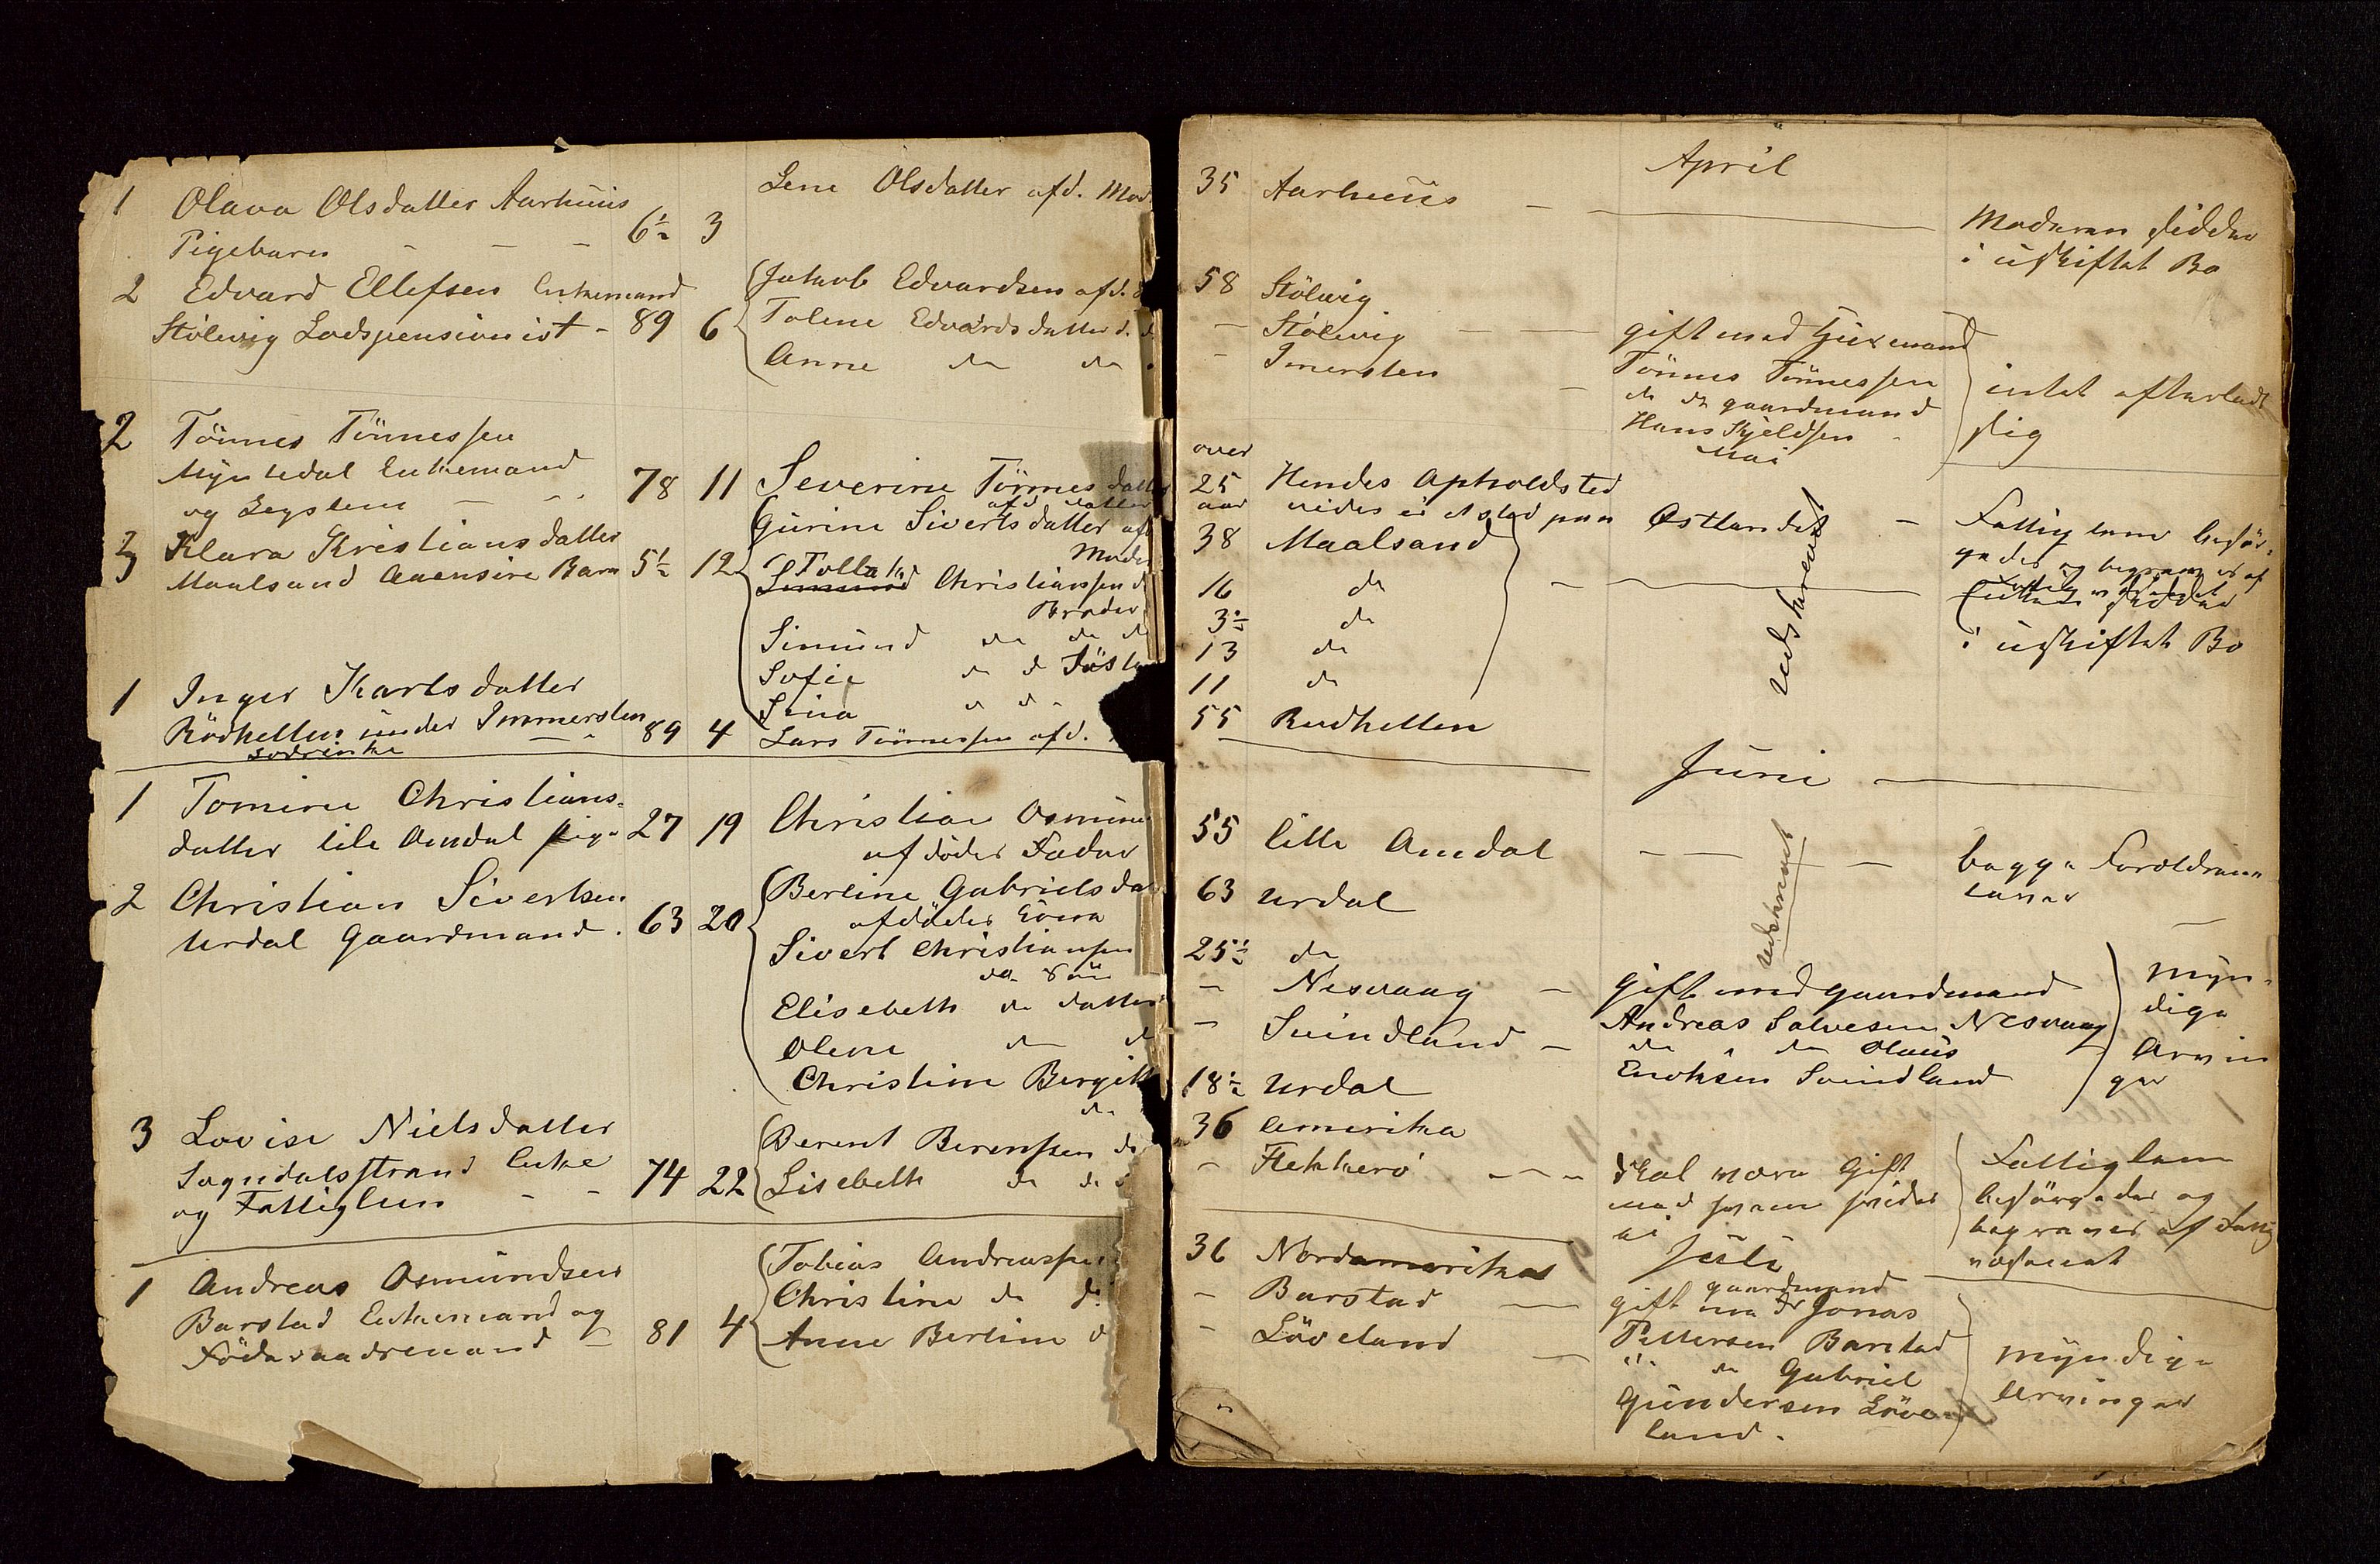 1 Olava Olsdatter Aarhuus
Pigebarn - - - 6½ 3 Lene Olsdatter afd. Mod
2 Edvard Ellefsen Enkemand
Stölevig Lodspensionist - 89 6
Jakob Edvardsen afd.
Tolene Edvardsdatter d.
Anne do do
2 Tönnes Tönnessen
Myssedal Enkemand
og Legslem - - 78 11 Severine Tönnesdatter
afd datter
3 Klara Kristiansdatter
Maalsand Barn 5½ 12
Gurine Sivertsdatter afd
Moder
Tollak
Simund Christianssen d
Broder
Simund do do do
Sofie do d Söster
Sina do d.
1 Inger Karlsdatter
Rödhellen under Immersten 89 4 Lars Tönnessen afd.
Lodsenke
1 Tomine Christians-
datter lile Amdal pige 27 19 Christian Osmund
afdödes Fader
2 Christian Sivertsen
Urdal Gaardmand. 63 20
Berline Gabrielsdat
afdödes Kona
Sivert Christianssen
do Sön
Elisebeth do datter
Olene do d
Christine Bergitt
do
3 Lovise Nielsdatter
Sogndalsstrand Enke
og Fattiglem - - 74 22
Berent Berentsen do
Lisebeth do do
1 Andreas Osmundsen
Barstad Enkemand og
Föderaadsmand - 81 4
Tobias Andreassen
Christine do d.
Anne Berline d
April
35 Aarhuus - -
Moderen sidder
i uskiftet Bo
58 Stölevig
- Stölevig - - gift med Huusmand
- Imersten - Tönnes Tönnessen
do do gaardmand
Hans Kjeldsen
intet efterladt
sig
Mai
over
25 Hendes Opholdsted
aar vides ei et sted paa Østlandet - Fattiglem besör-
gedes og begraves af
Fattigvæsenet
38 Maalsand - -
16 do
3½ do
13 do
11 do
Enken sidder
i uskiftet Bo
Udskrevet
55 Rödhellen
Juni
55 lille Amdal - - - begge Forældrene
lever
Udskrevet
63 Urdal
25½ do
- Nesvaag - gift med gaardmand
Andreas Salvesen Nesvaag
- Svindland - do do Olaus
Enoksen Svindland
18½ Urdal
myn-
dige
Arvin
ger
36 Amerika
- Flekkerö - - - skal være Gift
med hvem vides
ei
Fattiglem
besörgedes og
begraves af Fattig
væsenet
Juli
36 Nordamerika
- Barstad - gift med gaardmand Jonas
Pettersen Barstad
- Löveland - " do Gabriel
Gundersen Löve-
land.
myndige
Arvinger